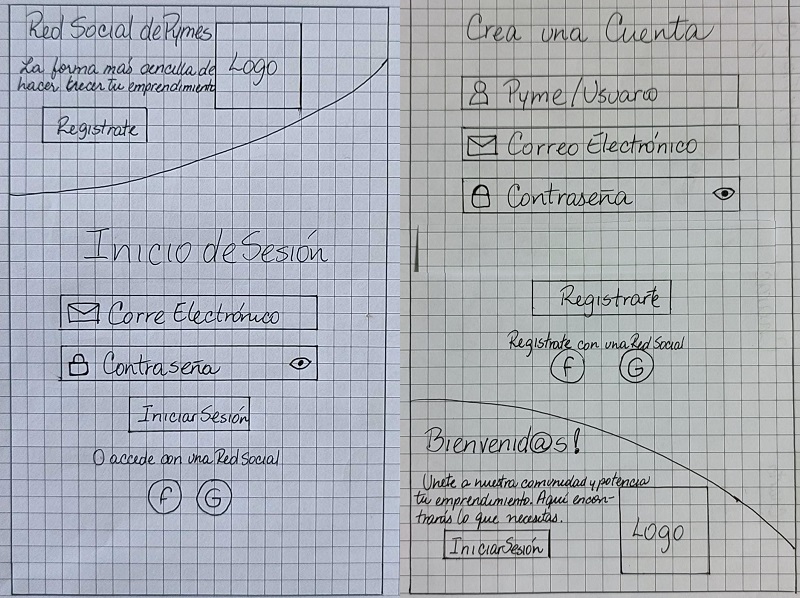 Red Social de Pymes
La forma más sencilla de
hacer crecer tu emprendimiento
Logo
Registrate
Inicio de Sesión
Corre Electrónico
Contraseña
Iniciar Sesión
O accede con una Red Social
F G
Crea una Cuenta
Pyme/Usuario
Correo Electrónico
Contraseña
Registrarte
Registrate con una Red Social
F G
Bienvenid@s!
Unete a nuestra comunidad y potencia
tu emprendimiento. Aquí encon-
trarás lo que necesitas.
Iniciar Sesión
Logo